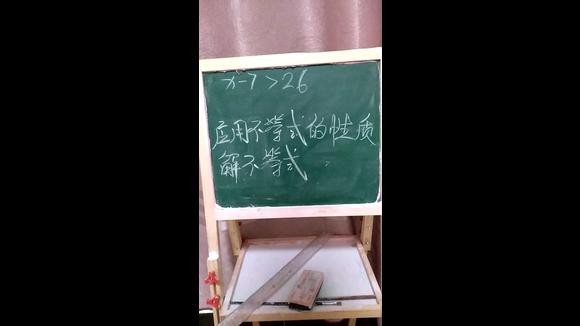 x-7>26
应用不等式的性质
解不等式